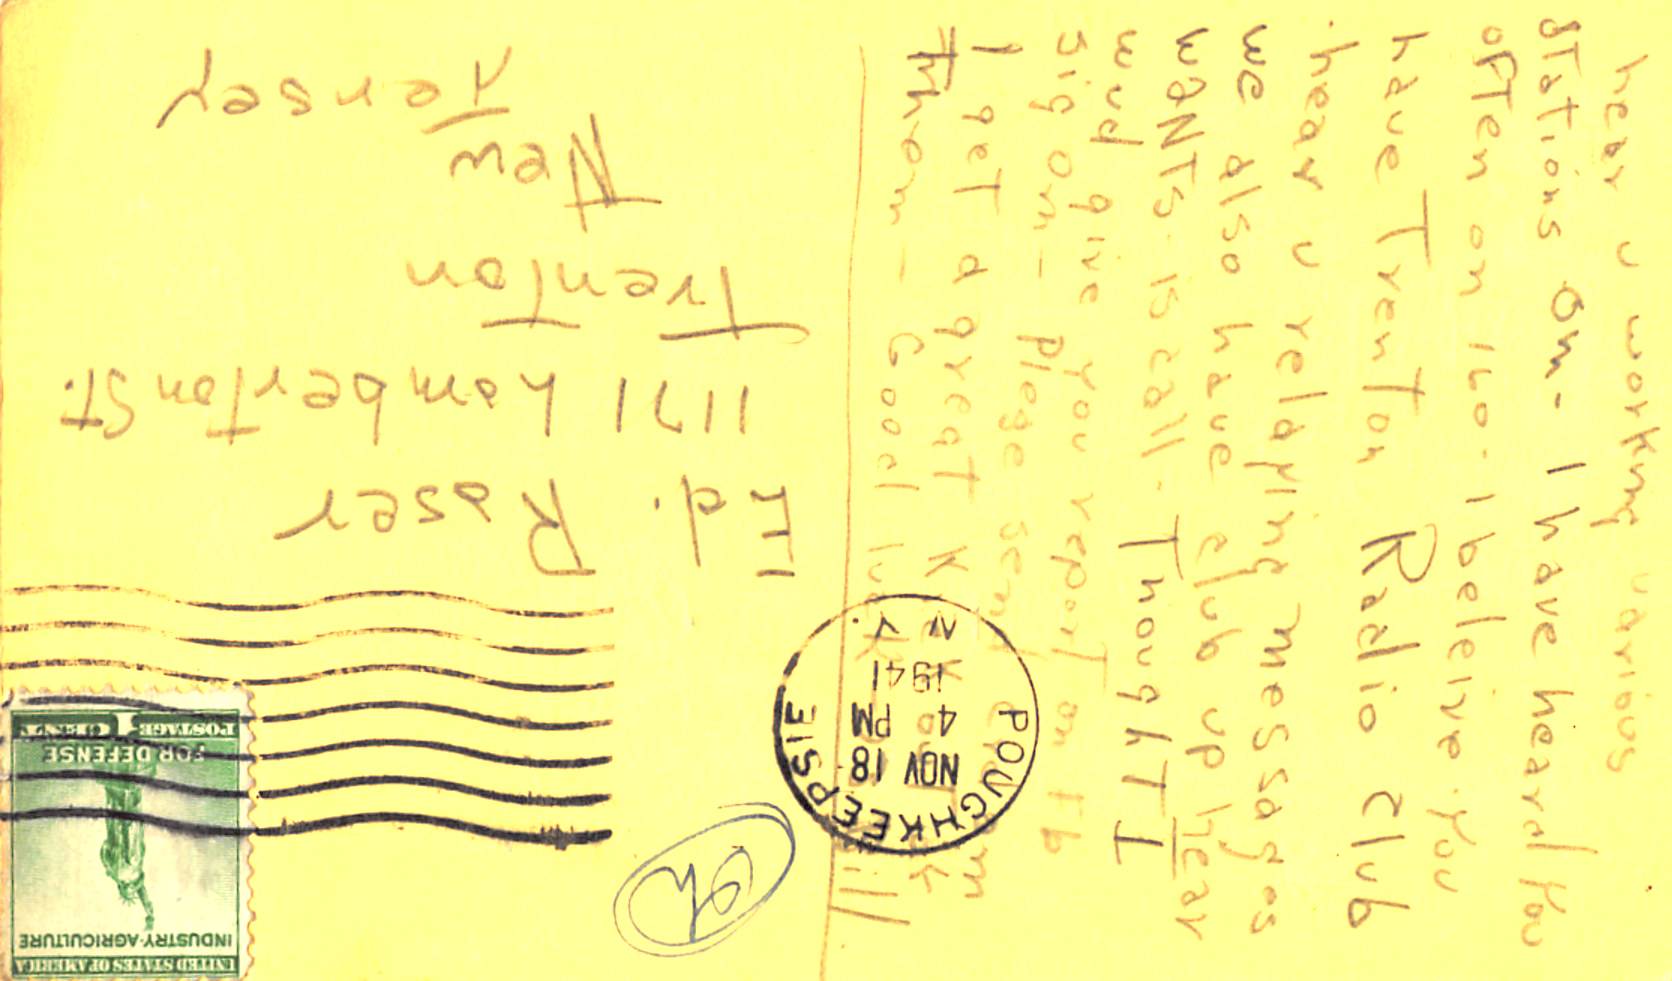 hear u working various
stations om - I have heard you
often on 160 - I beleive you
have Trenton Radio Club
hear u relaying messages
we also have club up here
wants is call. Thought I
wud give you report on Fb
sig om_ please send om
I get a great
Them_ Good luck Bill
UNITED STATES OF AMERICA
INDUSTRY-AGRICULTURE
FOR DEFENSE
1 CENT
POSTAGE
POUGHKEEPSIE
NOV 18
4 PM
1941
N.Y.
OK
Ed. Raser
1171 Lamberton St.
Trenton
New
Jersey